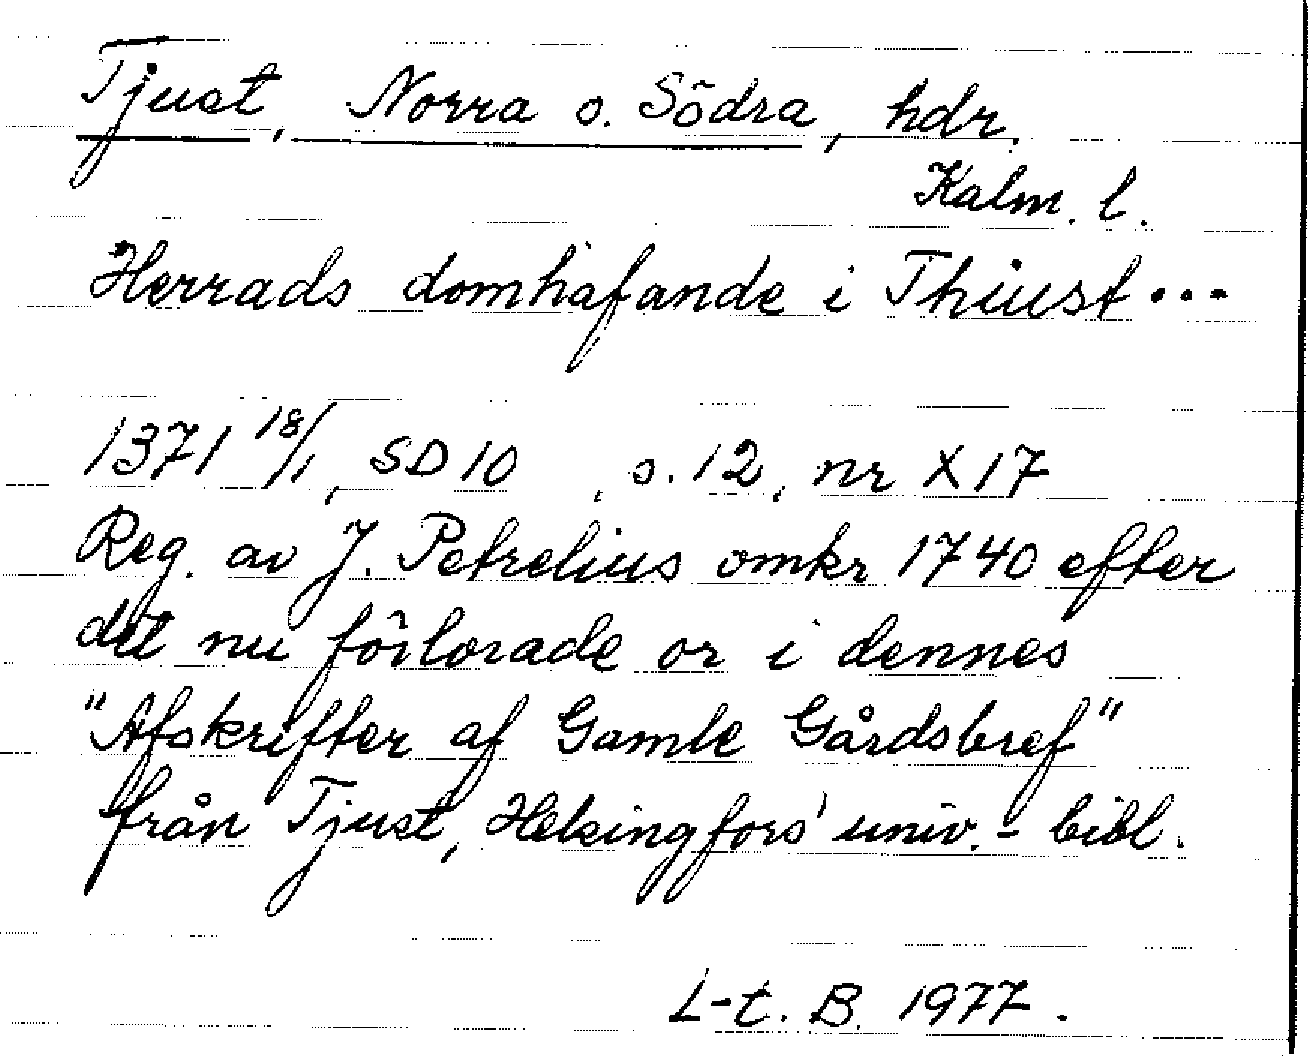 Tjust, Norra o. Södra, hdr.
Kalm. l.
Herrads domhafande i Thiust...
1371 18/1, SD 10 , s. 12, nr X 17
Reg. av J. Petrelius omkr 1740 efter
det nu förlorade or i dennes
"Afskrifter af Gamle Gårdsbref"
från Tjust, Helsingfors' univ.- bibl.
L-t. B. 1977.